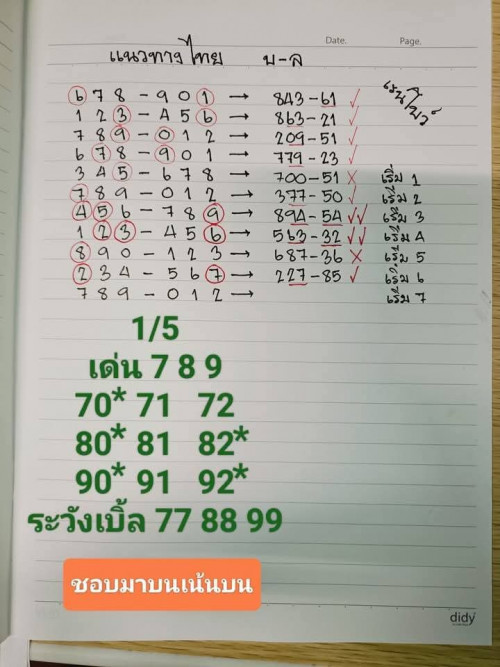 Date. Page.
แนวทางไทย บ-ล
678-901 → 843-61 ✓
123-456 → 863-21 ✓
789-012 → 209-51 ✓
678-901 → 779-23 ✓
345-678 → 700-51 ✗ เริ่ม 1
789-012 → 377-50 ✓ เริ่ม 2
456-789 → 894-54 ✓✓ เริ่ม 3
123-456 → 563-32 ✓✓ เริ่ม 4
890-123 → 687-36 ✗ เริ่ม 5
234-567 → 227-85 ✓ เริ่ม 6
789-012 → เริ่ม 7
1/5
เด่น 7 8 9
70* 71 72
80* 81 82*
90* 91 92*
ระวังเบิ้ล 77 88 99
ชอบมาบนเน้นบน
didy